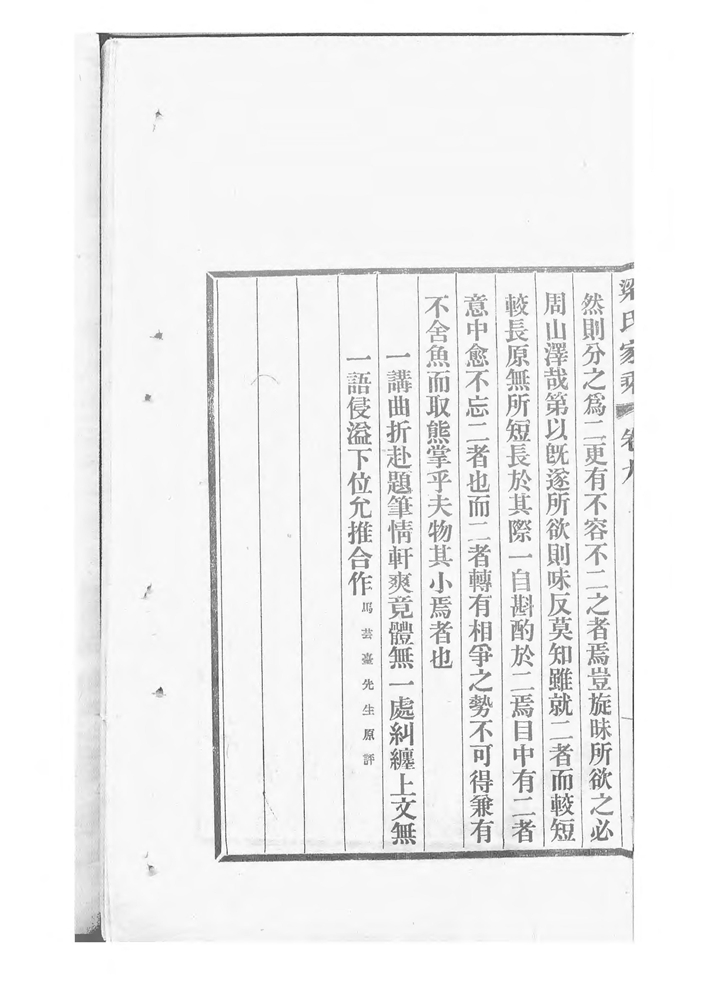 梁氏家乘 卷九
然則分之爲二更有不容不二之者焉豈旋昧所欲之必
周山澤哉第以旣遂所欲則味反莫知雖就二者而較短
較長原無所短長於其際一自斟酌於二焉目中有二者
意中愈不忘二者也而二者轉有相爭之勢不可得兼有
不舍魚而取熊掌乎夫物其小焉者也
一講曲折赴題筆情軒爽竟體無一處糾纏上文無
一語侵溢下位允推合作馬芸臺先生原評